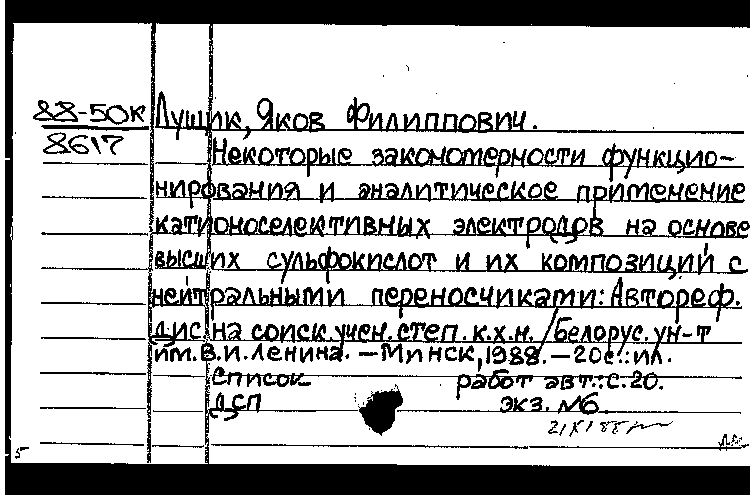 88-50к Лущик, Яков Филиппович.
8617
Некоторые закономерности функцио-
нирования и аналитическое применение
катионоселективных электродов на основе
высших сульфокислот и их композиций с
нейтральными переносчиками: Автореф.
дис на соиск. учен. степ. к.х.н. /Белорус. ун-т
им. В.И. Ленина. – Минск, 1988. – 20с.: ил.
Список работ авт.: с. 20.
ДСП экз. №6.
5